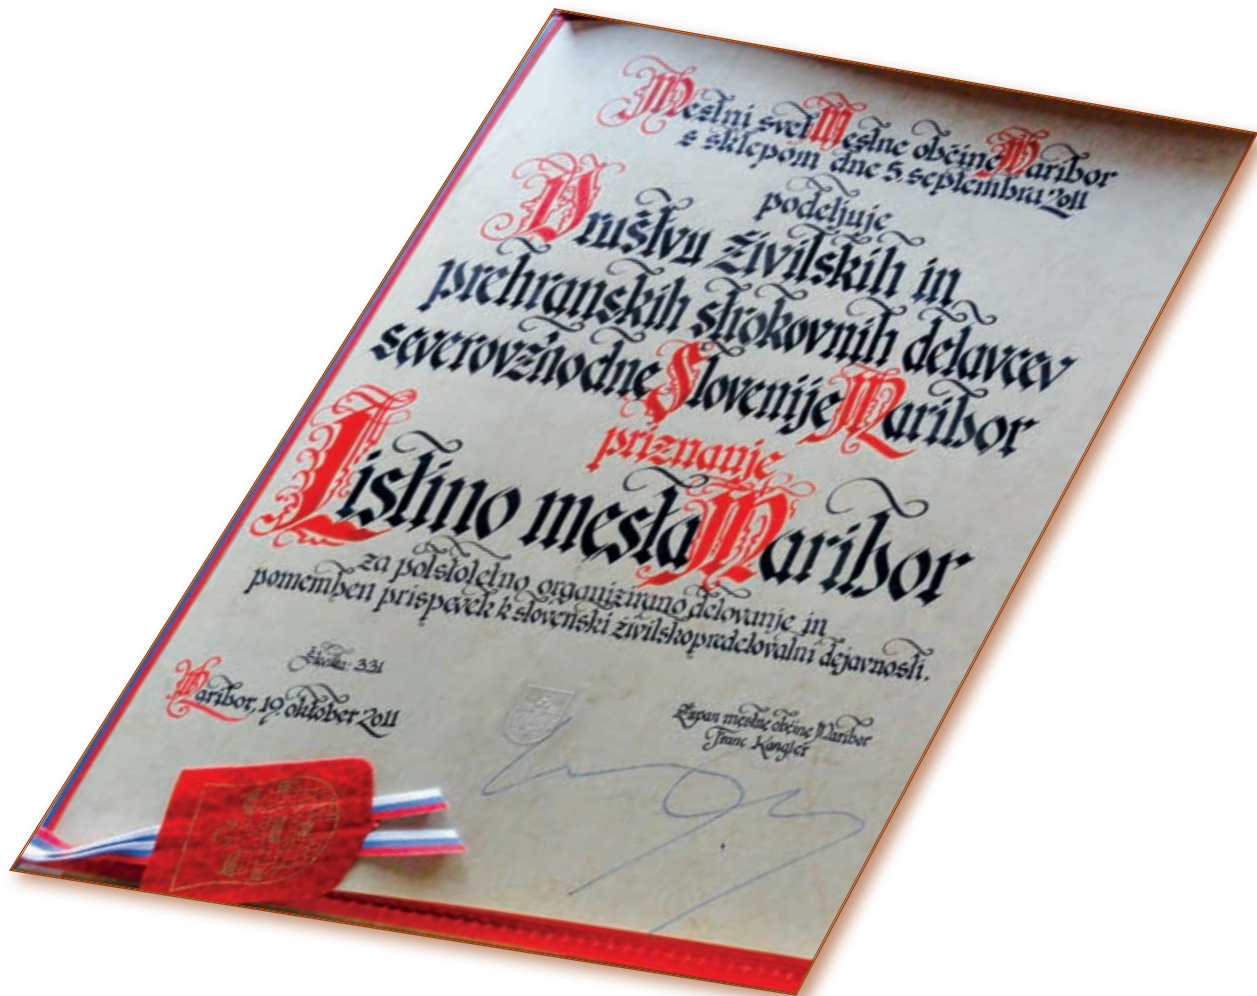 Mestni svet Mestne občine Maribor
s sklepom dne 5. septembra 2011
podeljuje
Društvu živilskih in
prehranskih strokovnih delavcev
severovzhodne Slovenije Maribor
priznanje
Listino mesta Maribor
za polstoletno organizirano delovanje in
pomemben prispevek k slovenski živilskopredelovalni dejavnosti.
Številka: 331
Maribor, 19. oktober 2011
Župan mestne občine Maribor
Franc Kangler